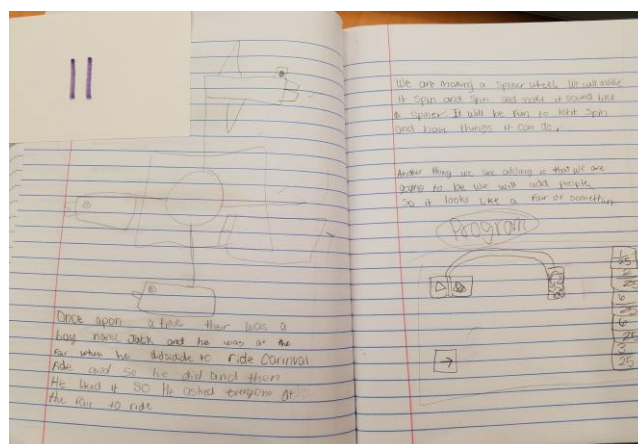 11
Once upon a time their was a
boy name Jack and he was at the
Fair when he didsidde to ride Connival
ride and so he did and then
He liked it so He asked everyone at
the Fair to ride
We are making a spiner wheel. We will make
it spin and spin and make it sound like
a spiner. It will be fun to let it spin
and have things it can do.
Another thing we are adding is that we are
going to be we will add people
so it looks like a fair or something
Program
25
2
6
6
25
3
25